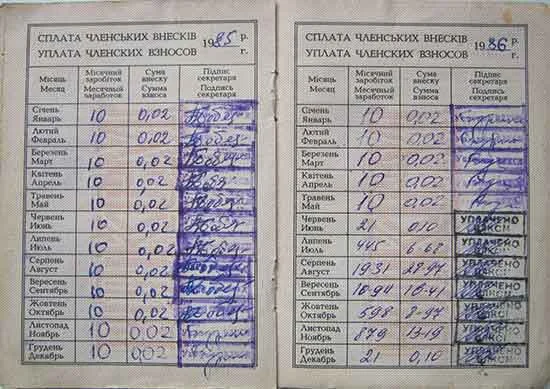 СПЛАТА ЧЛЕНСЬКИХ ВНЕСКІВ
УПЛАТА ЧЛЕНСКИХ ВЗНОСОВ
1985 р. г.
Місяць Місячний заробіток Сума внеску Підпис секретаря
Месяц Месячный заработок Сумма взноса Подпись секретаря
Січень Январь 10 0,02
Лютий Февраль 10 0,02
Березень Март 10 0,02
Квітень Апрель 10 0,02
Травень Май 10 0,02
Червень Июнь 10 0,02
Липень Июль 10 0,02
Серпень Август 10 0,02
Вересень Сентябрь 10 0,02
Жовтень Октябрь 10 0,02
Листопад Ноябрь 10 0,02
Грудень Декабрь 10 0,02
СПЛАТА ЧЛЕНСЬКИХ ВНЕСКІВ
УПЛАТА ЧЛЕНСКИХ ВЗНОСОВ
1986 р. г.
Місяць Місячний заробіток Сума внеску Підпис секретаря
Месяц Месячный заработок Сумма взноса Подпись секретаря
Січень Январь 10 0,02
Лютий Февраль 10 0,02
Березень Март 10 0,02
Квітень Апрель 10 0,02
Травень Май 10 0,02
Червень Июнь 21 0,10 УПЛАЧЕНО ЛКСМ
Липень Июль 445 6-68 УПЛАЧЕНО
Серпень Август 1931 28-97 УПЛАЧЕНО
Вересень Сентябрь 1094 16-41 УПЛАЧЕНО
Жовтень Октябрь 598 8-97 УПЛАЧЕНО
Листопад Ноябрь 879 13-19 УПЛАЧЕНО
Грудень Декабрь 21 0,10 УПЛАЧЕНО